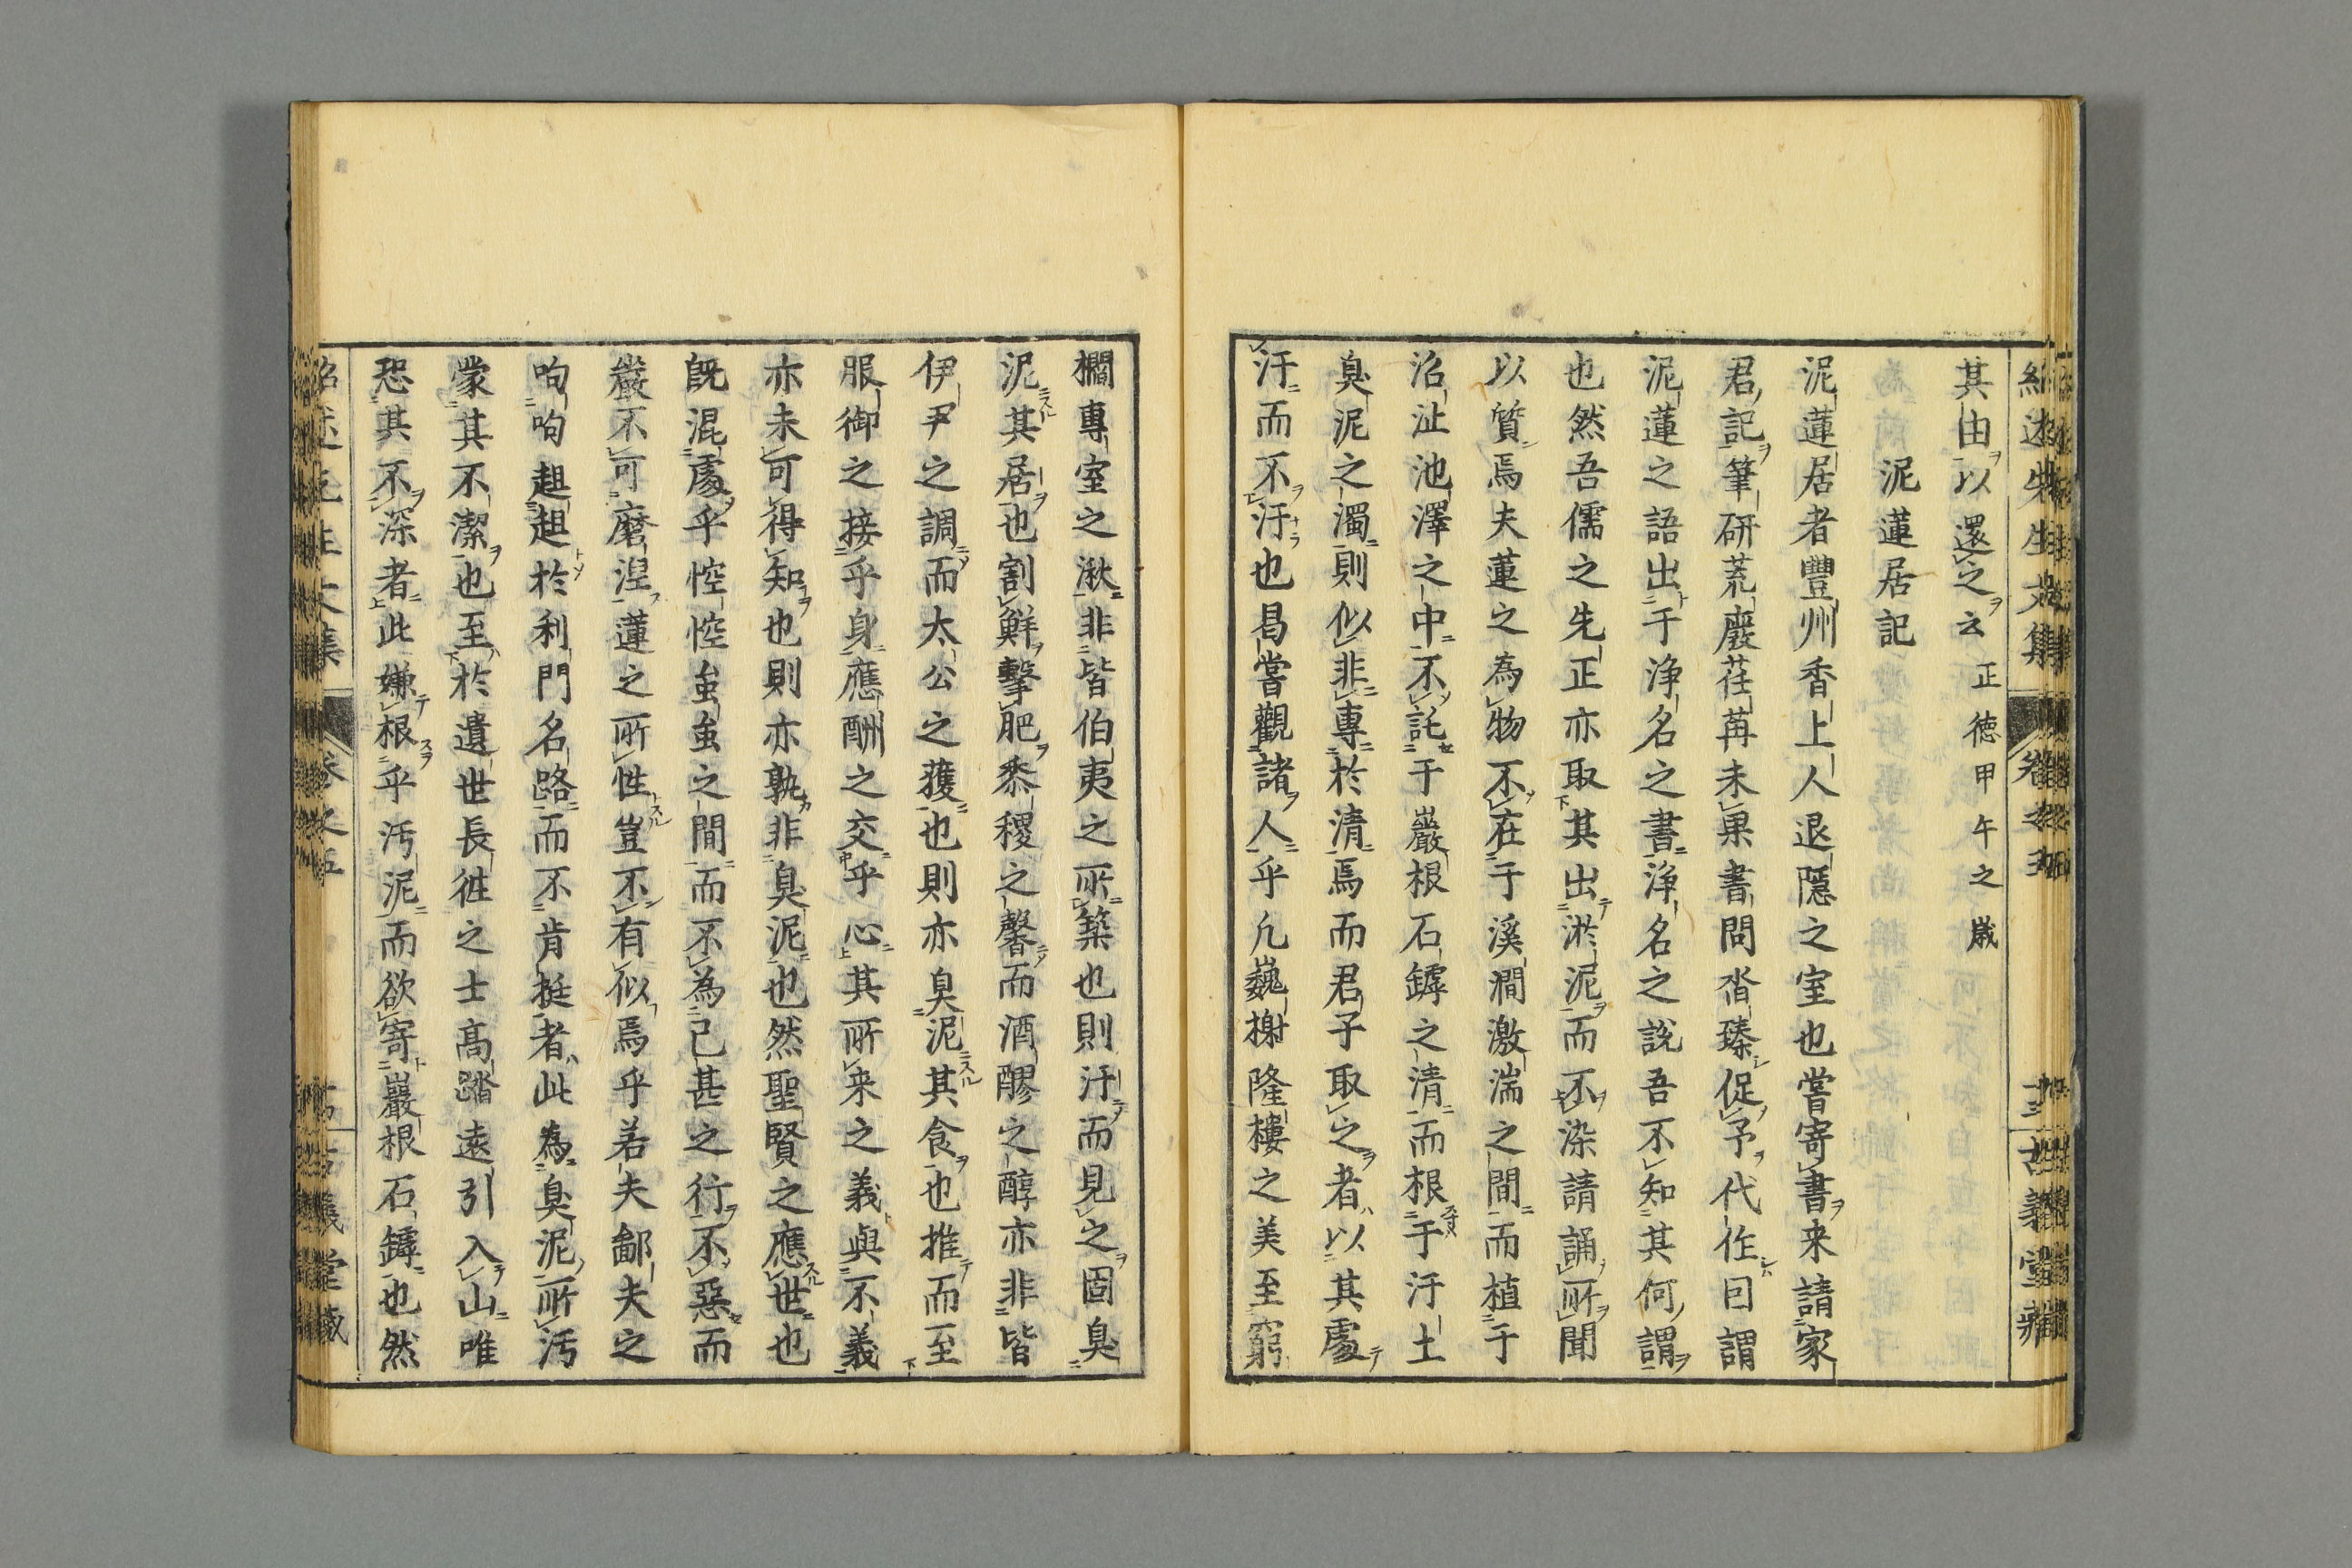 其由以還之云正徳甲午之歳
泥蓮居記
泥蓮居者豐州香上人退隱之室也嘗寄書来請家
君記筆研荒廢荏苒未果書問沓臻促予代作曰謂
泥蓮之語出于浄名之書浄名之說吾不知其何謂
也然吾儒之先正亦取其出淤泥而不染請誦所聞
以質焉夫蓮之為物不在于溪澗激湍之間而植于
沼沚池澤之中不託于巖根石罅之清而根于汙土
臭泥之濁則似非專於清焉而君子取之者以其處
汙而不汙也曷嘗觀諸人乎凢巍榭隆樓之美至窮
櫩專室之湫非皆伯夷之所築也則汙而見之固臭
泥其居也割鮮擊肥黍稷之馨而酒醪之醇亦非皆
伊尹之調而太公之獲也則亦臭泥其食也推而至
服御之接乎身應酬之交乎心其所来之義與不義
亦未可得知也則亦孰非臭泥也然聖賢之應世也
旣混處乎悾悾蚩蚩之間而不為已甚之行不惡而
嚴不可磨涅蓮之所性豈不有似焉乎若夫鄙夫之
呴呴趄趄於利門名路而不肯挺者此為臭泥所汚
蒙其不潔也至於遺世長徃之士高踏遠引入山唯
恐其不深者此嫌根乎汚泥而欲寄巖根石罅也然
紹述先生文集
卷之五
古義堂藏